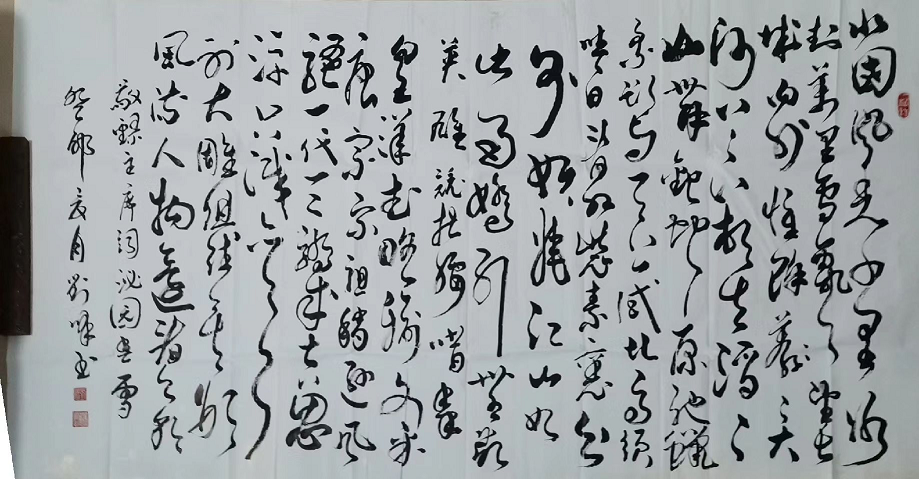 北国风光千里冰
封萬里雪飘望长
城内外惟馀莽莽大
河上下顿失滔滔
山舞銀蛇原驰蠟
象欲与天公试比高须
晴日看红装素裹分
外妖娆江山如
此多娇引无数
英雄競折腰惜秦
皇漢武略输文采
唐宗宋祖稍逊风
骚一代天骄成吉思
汗只識弯弓
射大雕俱往矣数
风流人物還看今朝
敬录主席词沁园春雪
癸卯月书